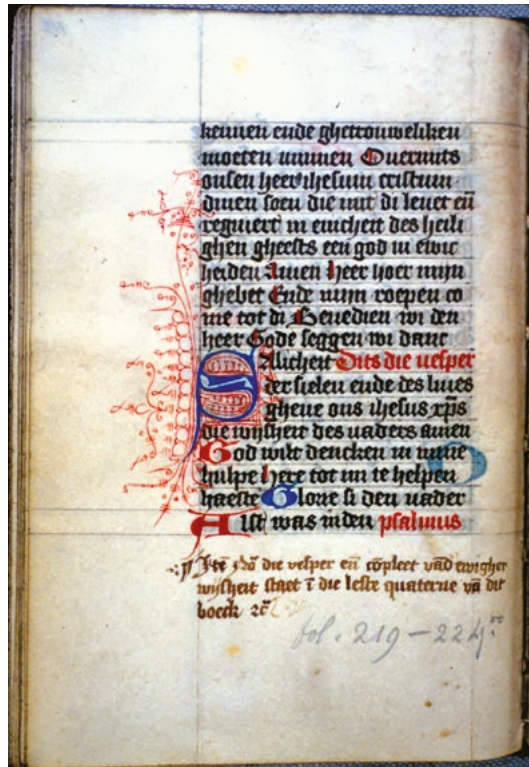 kennen ende ghetrouweliken
moeten minnen Overmits
onsen heer ihesum cristum
dinen soen die mit di levet eñ
regniert in enicheit des heili
ghen gheests een god in ewic
heiden Amen Heer hoer mijn
ghebet Ende mijn roepen co
me tot di Benedien wi den
heer Gode seggen wi danc
Salicheit Dits die vesper
der sielen ende des lives
gheve ons ihesus xp̄s
die wijsheit des vaders amen
God wilt dencken in mine
hulpe here tot mi te helpen
haeste Glorie si den vader
Alst was inden psalmus
die vesper eñ cōpleet vād ewigher
wijsheit staet ī die leste quaterne vā dit
boeck
fol. 219 – 224